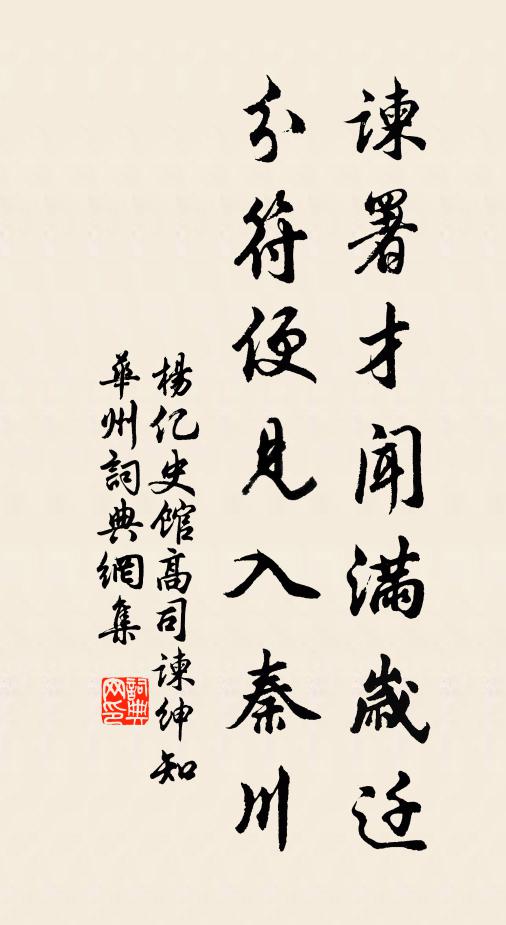 諫署才聞滿歲迁
分符便見入秦川
楊亿史館高司諫紳知
華州詞典網集
詞典
网印